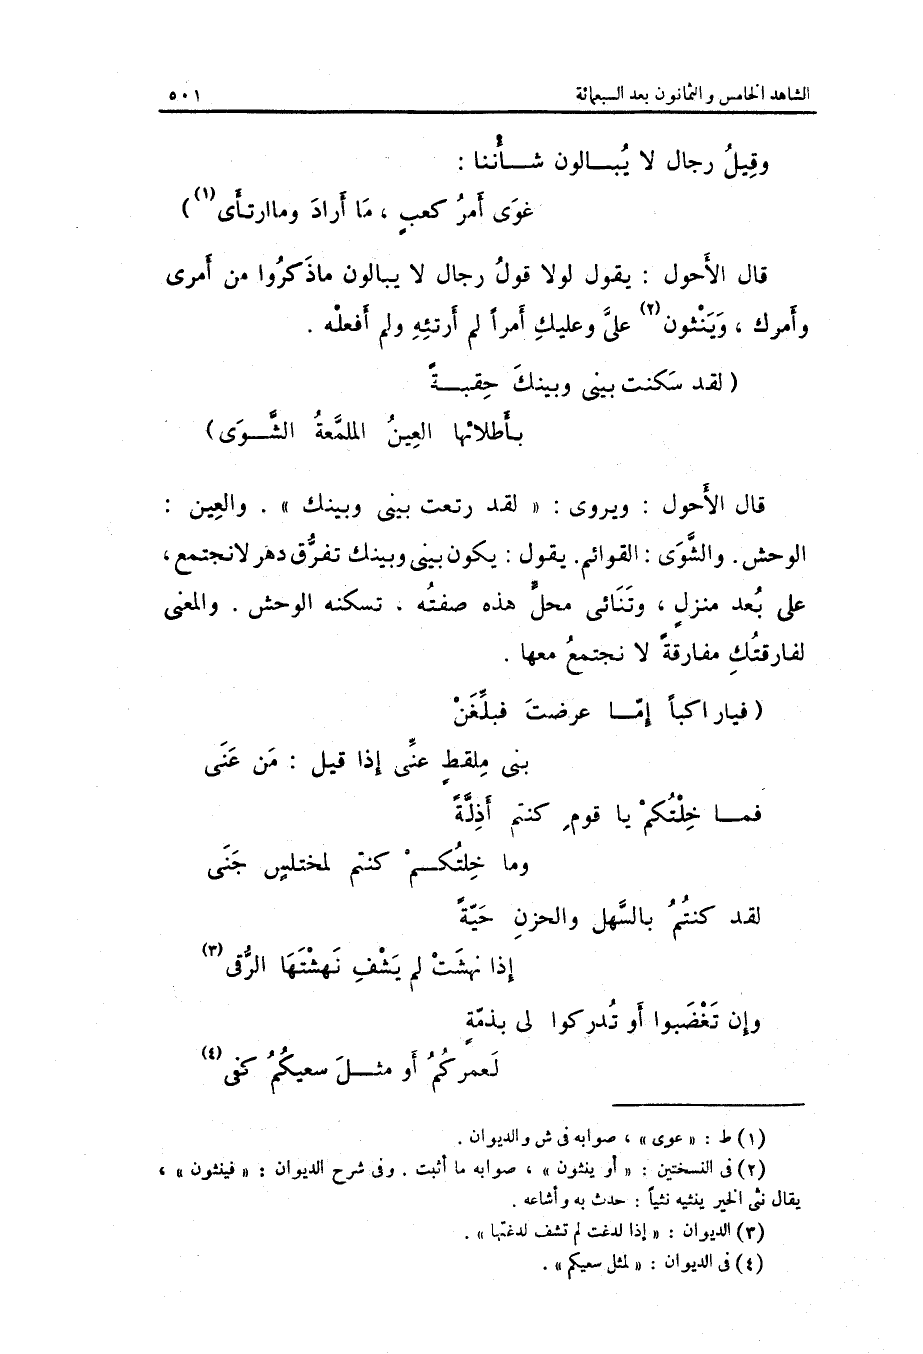 الشاهد الخامس والثمانون بعد السبعمائة ٥٠١
وقِيلُ رجال لا يُبـــالون شــأْننا :
غوَى أَمرُ كعبٍ ، مَا أَرادَ وما ارتأَى(١) )
قال الأَحول : يقول لولا قولُ رجال لا يبالون ماذكرُوا من أَمرى
وأَمرك ، وَيَنْثون(٢) علىَّ وعليكِ أَمراً لم أَرتئِهِ ولم أَفعلْه .
( لقد سَكنت بينى وبينكَ حِقبـــةً
بأَطلائها العِينُ الملمَّعةُ الشَّــوَى )
قال الأَحول : ويروى : « لقد رتعت بينى وبينك » . والعِين :
الوحش . والشَّوَى : القوائم . يقول : يكون بينى وبينك تفرُّق دهر لانجتمع ،
على بُعد منزلٍ ، وتَنَائى محلٍّ هذه صفتُه . تسكنه الوحش . والمعنى
لفارقتُكِ مفارقةً لا نجتمعُ معها .
( فيا راكباً إمّــا عرضتَ فبلِّغَنْ
بنى مِلقطٍ عنِّى إذا قيل : مَن عَنَى
فمــا خِلْتُكمْ يا قومِ كنتم أَذِلَّةً
وما خِلتُكــمْ كنتم لمختلِسٍ جَنَى
لقد كنتُمُ بالسَّهل والحزنِ حَيّةً
إذا نهشَتْ لم يَشْفِ نَهشْتَهَا الرُّقى(٣)
وإن تَغْضَبوا أَو تُدركوا لى بذمّةٍ
لَعمركُمُ أَو مثــلَ سعيكُمُ كفى(٤)
(١) ط : « عوى » ، صوابه فى ش والديوان .
(٢) فى النسختين : « أو ينثون » ، صوابه ما أثبت . وفى شرح الديوان : « فينثون » ،
يقال نثى الخبر ينثيه نثياً : حدث به وأشاعه .
(٣) الديوان : « إذا لدغت لم تشف لدغتها » .
(٤) فى الديوان : « لمثل سعيكم » .